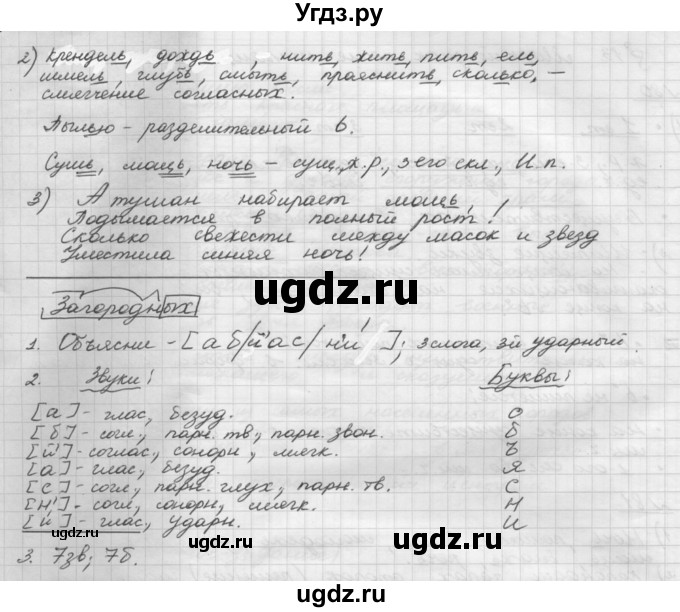 Угдз.ру
2) Крендель, дождь, нить, жить, пить, ель,
шмель, глубь, смыть, прояснить, сколько, —
смягчение согласных.
Пылью – разделительный ь.
Сушь, мощь, ночь – сущ., ж.р., 3-его скл., И.п.
3) А туман набирает мощь,
Подымается в полный рост!
Сколько свежести между масок и звезд
Уместила синяя ночь!
ugdz.ru
ugdz.ru
Загородных
1. Объясни - [а б/й'а с/н'и́]; 3 слога, 3й ударный.
2. Звуки: Буквы:
[а] - глас, безуд. О
[б] - согл, парн. тв, парн. звон. б
[й'] - соглас, сонорн, мягк. Ъ
[а] - глас, безуд. Я
[с] - согл, парн. глух, парн. тв. С
[н'] - согл, сонорн, мягк. Н
[и́] - глас, ударн. И
ugdz.ru
ugdz.ru
3. 7зв; 7б.
ugdz.ru